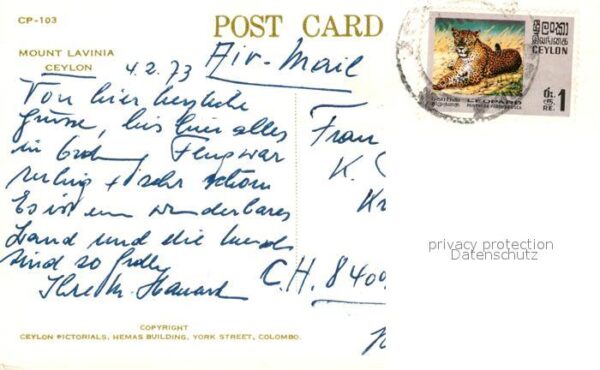 CP-103
POST CARD
MOUNT LAVINIA
CEYLON
4.2.73
Air-Mail
ශ්‍රී ලංකා
இலங்கை
CEYLON
LEOPARD
රු.
ரூ.
RE. 1
Von hier herzliche
Grüsse, bis hier alles
in Ordng Flug war
ruhig + sehr schön
Es ist ein wunderbares
Land und die
sind so
Ihre M.
Frau
K.
Kr
CH. 8400
privacy protection
Datenschutz
COPYRIGHT
CEYLON PICTORIALS, HEMAS BUILDING, YORK STREET, COLOMBO.